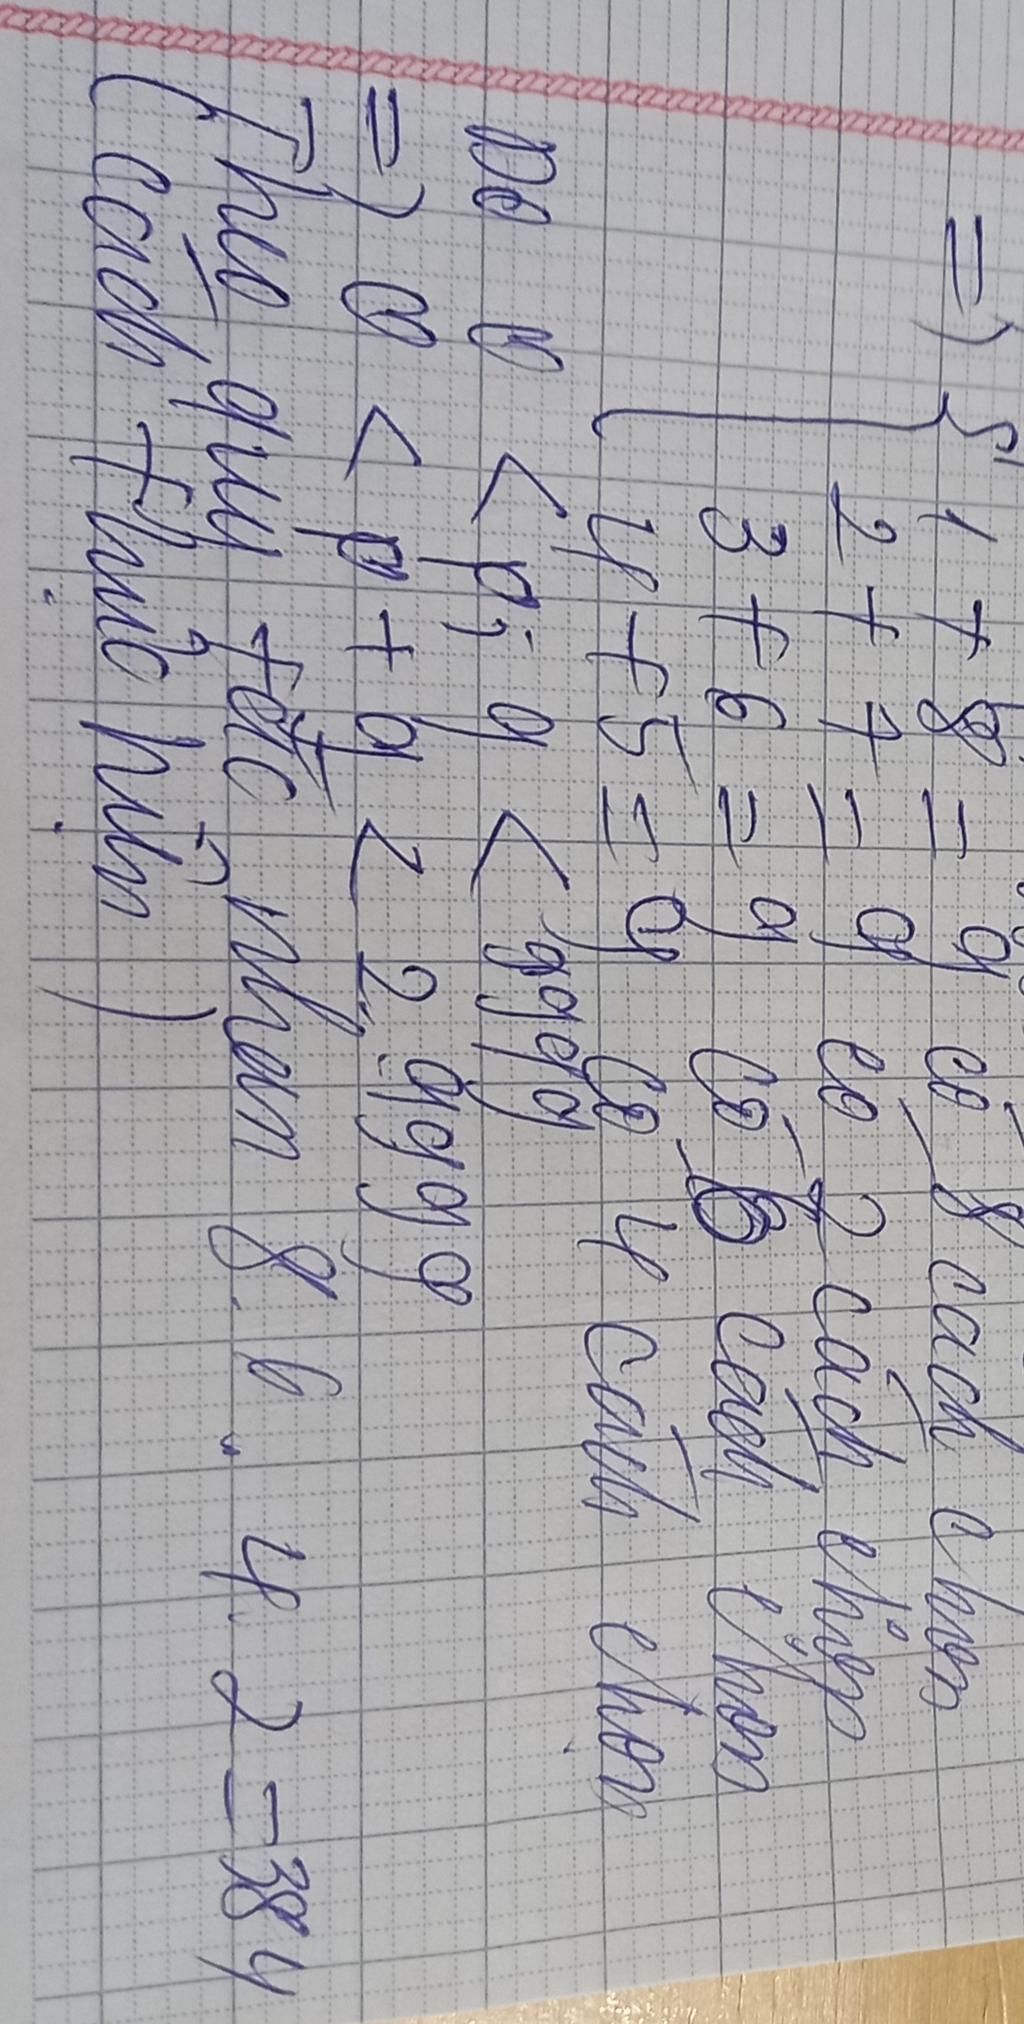 => { 1 + 8 = 9 có 8 cách chọn
2 + 7 = 9 có 2 cách chọn
3 + 6 = 9 có 6 cách chọn
4 + 5 = 9 có 4 cách chọn
Do 0 < p; q < 9999
=> 0 < p + q < 2.9999
Theo quy tắc nhân 8.6.4.2 = 384
( cách thực hiện )